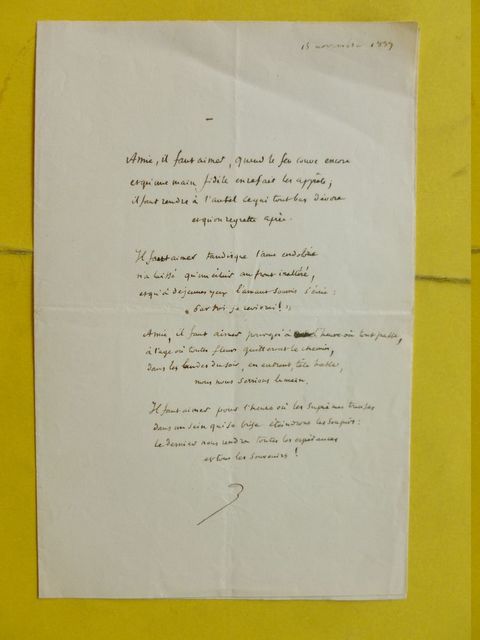 15 novembre 1899
Amie, il faut aimer, quand le feu couve encore
et qu'une main fidèle en refait les apprêts;
il faut rendre à l'autel ce qui tout bas dévore
et qu'on regrette après.
Il faut aimer tandis que l'âme endolorie
n'a laissé qu'un au front
et qu'à de jeunes yeux l'amant soumis s'écrie:
"Par toi, je revivrai!",
Amie, il faut aimer pour qu'à l'heure où tout passe,
à l'âge où toutes fleurs quitteront le chemin,
dans les landes du soir, en entrant, tête basse,
nous nous serrions la main.
Il faut aimer pour l'heure où les suprêmes
dans un sein qui se brise éteindront les soupirs:
le dernier nous rendra toutes les espérances
et tous les souvenirs!